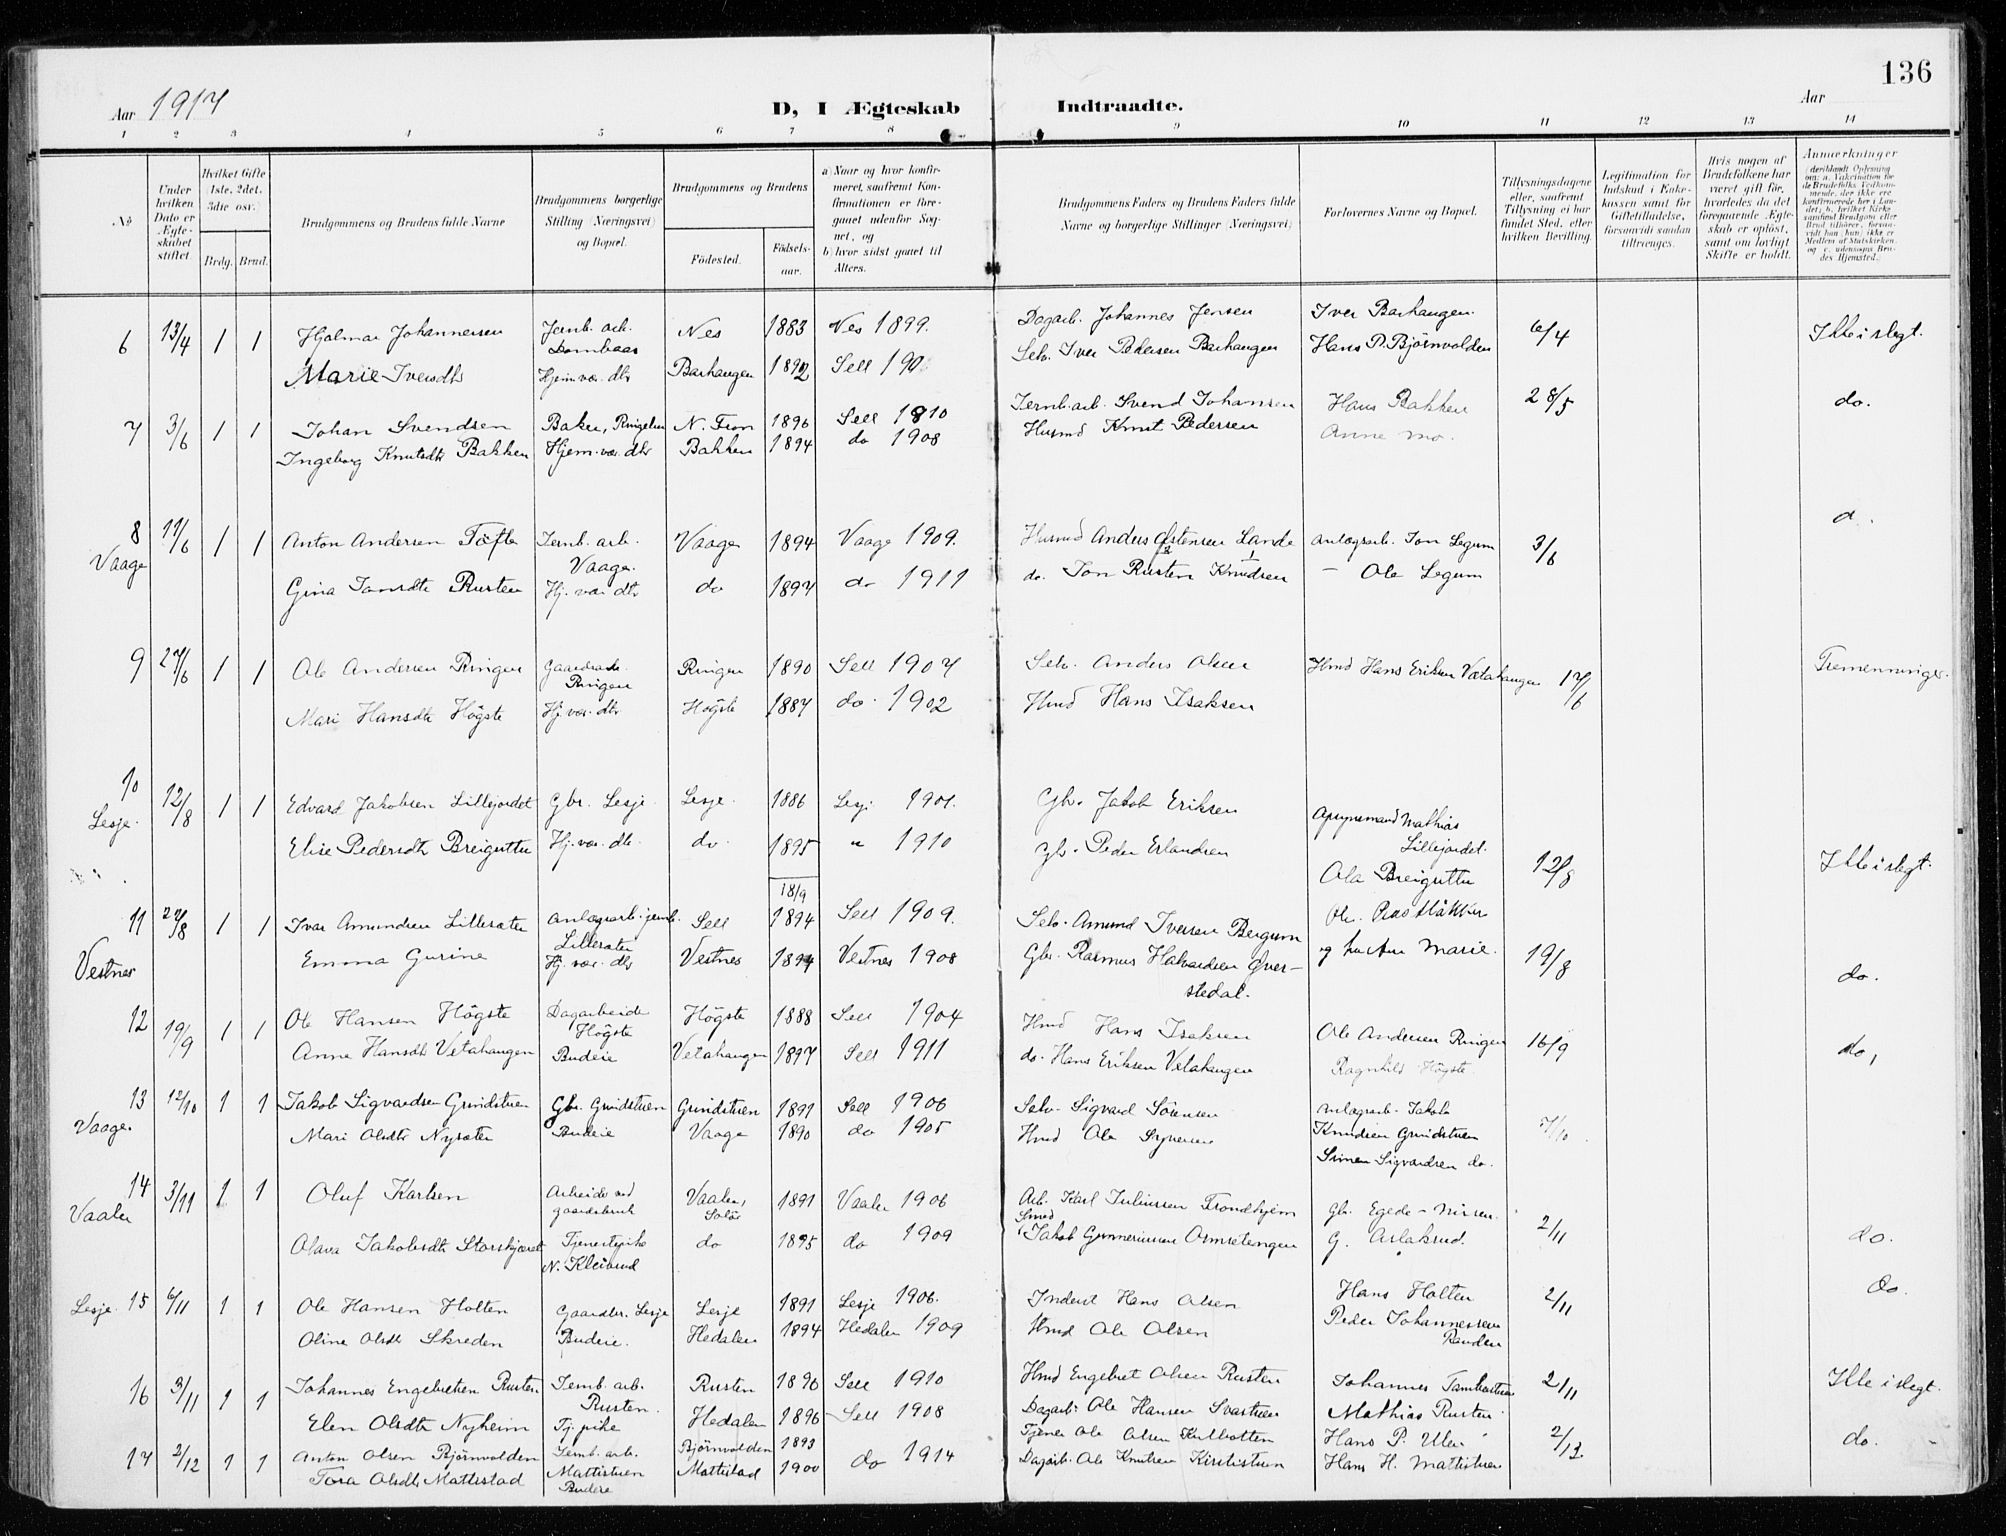 136
Aar 1917
D, I Ægteskab Indtraadte.
Aar
1 2 3 4 5 6 7 8 9 10 11 12 13 14
No
Under hvilken Dato er Ægteskabet stiftet.
Hvilket Gifte 1ste, 2det, 3die osv.)
Brdg. Brud.
Brudgommens og Brudens fulde Navne
Brudgommens borgerlige Stilling (Næringsvei) og Bopæl.
Brudgommens og Brudens
Födested.
Födsels-aar.
a) Naar og hvor konfirmeret, saafremt Konfirmationen er foregaaet udenfor Sognet, og
b) hvor sidst gaaet til Alters.
Brudgommens Faders og Brudens Faders fulde Navne og borgerlige Stillinger (Næringsvei)
Forlovernes Navne og Bopæl.
Tillysningsdagene eller, saafremt Tillysning ei har fundet Sted, efter hvilken Bevilling.
Legitimation for Indskud i Enkekassen samt for Giftetilladelse, forsaavidt saadan tiltrænges.
Hvis nogen af Brudefolkene har været gift för, hvorledes da det foregaaende Ægteskab er oplöst, samt om lovligt Skifte er holdt.
Anmærkninger
(deriblandt Oplysning om: a. Vakcination for de Brudefolks Vedkommende, der ikke ere konfirmerede her i Landet; b. hvilket Kirkesamfund Brudgom eller Brud tilhörer, forsaavidt han (hun) ikke er Medlem af Statskirken, og c. udensogns Brudes Hjemsted.)
6 13/4 1 1 Hjalmar Johannesen Jernb. arb. Dombaas Nes 1883 Nes 1899. Dagarb. Johannes Jensen Iver Barhaugen. 6/4 Ikke i slegt.
Marie Iversdtr Hjemvær. dtr Barhaugen 1892 Sell 190 Selv. Iver Pedersen Barhaugen Hans P. Bjørnvolden
7 3/6 1 1 Johan Svendsen Baker, Ringebu N. Fron 1896 Sell 1810 Jernb. arb. Svend Johansen Hans Bakken 28/5 do.
Ingeborg Knutsdtr Bakken Hjem. vær. dtr Bakken 1894 do 1908 Husmd Knut Pedersen Anne Mo.
8 17/6 1 1 Anton Andersen Töfte Jernb. arb. Vaage. Vaage 1894 Vaage 1909. Husmd Anders Østensen Lande anlægsarb. Jon Legum 3/6 d.
Vaage
Gina Jonsdtr Rusten Hj. vær dtr do 1897 do 1911 do. Jon Rusten Knudsen — Ole Legum
9 27/6 1 1 Ole Andersen Ringen Ringen Ringen 1890 Sell 1907 Selv. Anders Olsen Hmd Hans Eriksen Vetahaugen 17/6 Tremenninger.
Mari Hansdtr Högste Hj. vær. dtr Högste 1887 do. 1902 Hmd Hans Isaksen
10 12/8 1 1 Edvard Jakobsen Lillejordet Gbr. Lesje. Lesje. 1886 Lesj. 1901. Gbr. Jakob Eriksen Opsynsmand Mathias Lillejordet. 12/8 Ikke i slegt.
Lesje.
Elise Pedersdtr Breigutu Hj. vær. dtr. do. 1895 " 1910 Gbr. Peder Erlandsen Ola Breiguttu
18/9
11 27/8 1 1 Ivar Amundsen Lillesæter anlægsarb. jernb. Lillesæter Sell 1894 Sell 1909. Selv. Amund Iversen Bergum 19/8 do.
Vestnes
Emma Gurine Hj. vær. dtr Vestnes 1894 Vestnes 1908 Gbr. Rasmus Halvardsen Øverstedal. og fru Ane Marie.
12 19/9 1 1 Ole Hansen Högste Dagarbeide Högste Högste 1888 Sell 1904 Hmd Hans Isaksen Ole Andersen Ringen 16/9 do,
Anne Hansdtr Vetahaugen Budeie Vetahaugen 1897 Sell 1911 do. Hans Eriksen Vetahaugen Ragnhild Högste
13 12/10 1 1 Jakob Sigvardsen Grindstuen Gbr. Grindstuen Grindstuen 1891 Sell 1906 Selv. Sigvard Sörensen anlægsarb. Jakob Knudsen Grindstuen 7/10
Vaage.
Mari Olsdtr Nysæter Budeie Vaage 1890 do 1905 Hmd Ole Syversen Simen Sigvardsen do.
14 3/11 1 1 Oluf Karlsen Arbeide ved gaardsbruk Vaaler, Solör 1891 Vaaler 1906 Arb. Karl Juliussen Trondhjem Gbr. Egede-Nissen. 2/11 do.
Vaaler
Olava Jakobsdtr Storskjæret Tjenestepike N. Kleivrud do 1895 do 1909 Smed Jakob Gunneriussen Ormsetengen G. Aslaksrud.
15 6/11 1 1 Ole Hansen Holten Gaardbr. Lesje Lesje 1891 Lesje 1906. Inderst Hans Olsen Hans Holten 2/11 do.
Lesje.
Oline Olsdtr Skreden Budeie. Hedalen 1894 Hedalen 1909 Hmd Ole Olsen Peder Johannessen Randen
16 3/11 1 1 Johannes Engebretsen Rusten Jernb. arb. Rusten. Rusten 1896 Sell 1910 Hmd Engebret Olsen Rusten Johannes 2/11 Ikke i slegt.
Elen Olsdtr Nyheim Tj. pike Hedalen 1896 Sell 1908 Dagarb. Ole Hansen Svastuen Mathias Rusten.
17 2/12 1 1 Anton Olsen Bjørnvolden Jernb. arb. Mattistuen Bjørnvolden 1893 do 1914 Tjener Ole Olsen Kulbotten Hans P. Ulen 2/12 do.
Tora Olsdtr Mattistad Budeie Mattistad 1900 Dagarb. Ole Knutsen Kirstistuen Hans H. Mattistuen